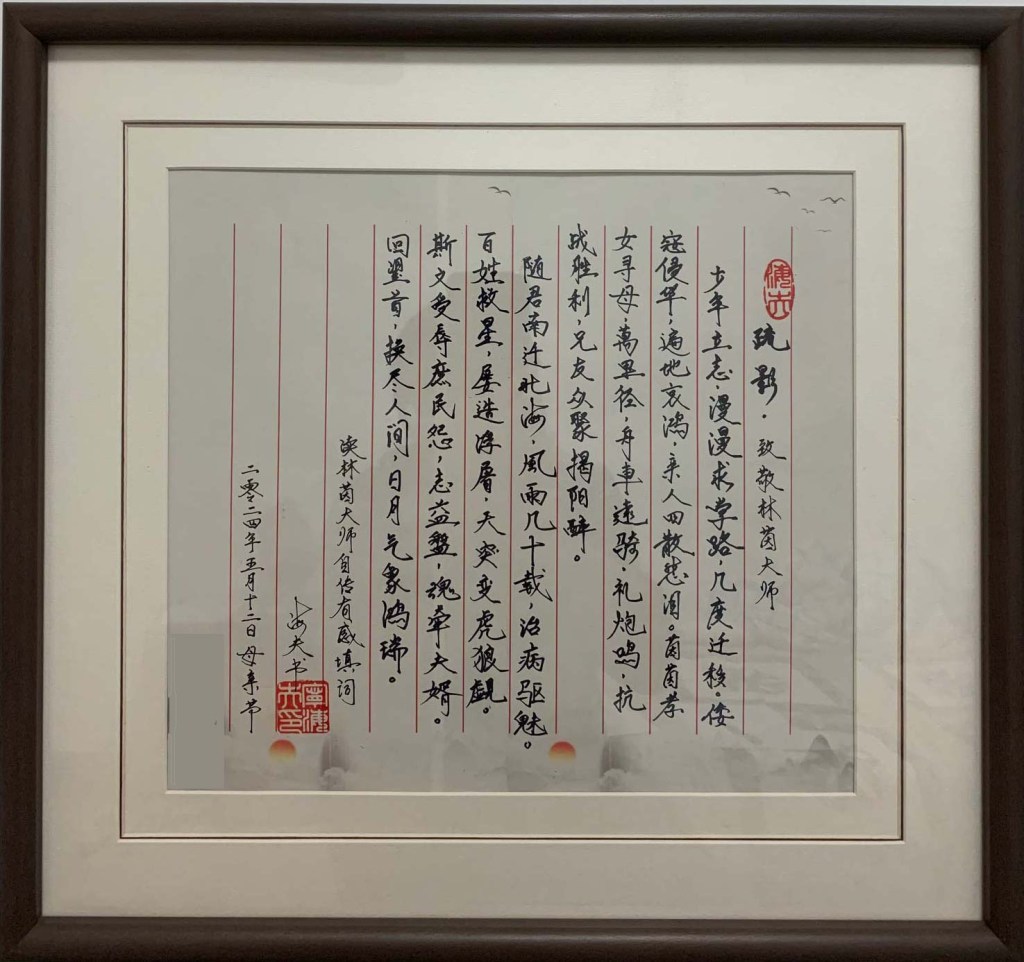 疏影·致敬林茵大师
少年立志，漫漫求学路，几度迁移。倭
寇侵华，遍地哀鸿，亲人四散愁泪。茵茵孝
女寻母，萬里径，舟車遠骑。礼炮鸣，抗
战胜利，兄友众聚揭阳醉。
随君南迁北海，風雨几十载，治病驱魅。
百姓救星，屡造浮屠，天突变虎狼觑。
斯文受辱庶民怨，志益盤，魂牵夫婿。
回望首，换尽人间，日月气象鸿瑞。
读林茵大师自传有感填词
海夫书
二零二四年五月十二日母亲节